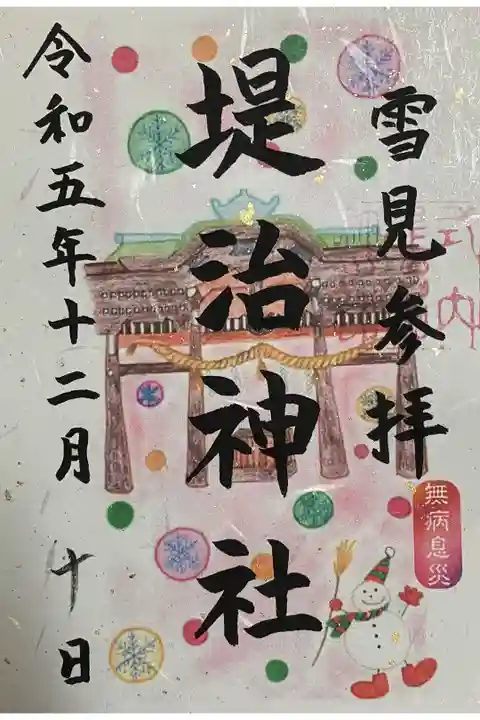 雪見参拝
無病息災
堤治神社
令和五年十二月十日